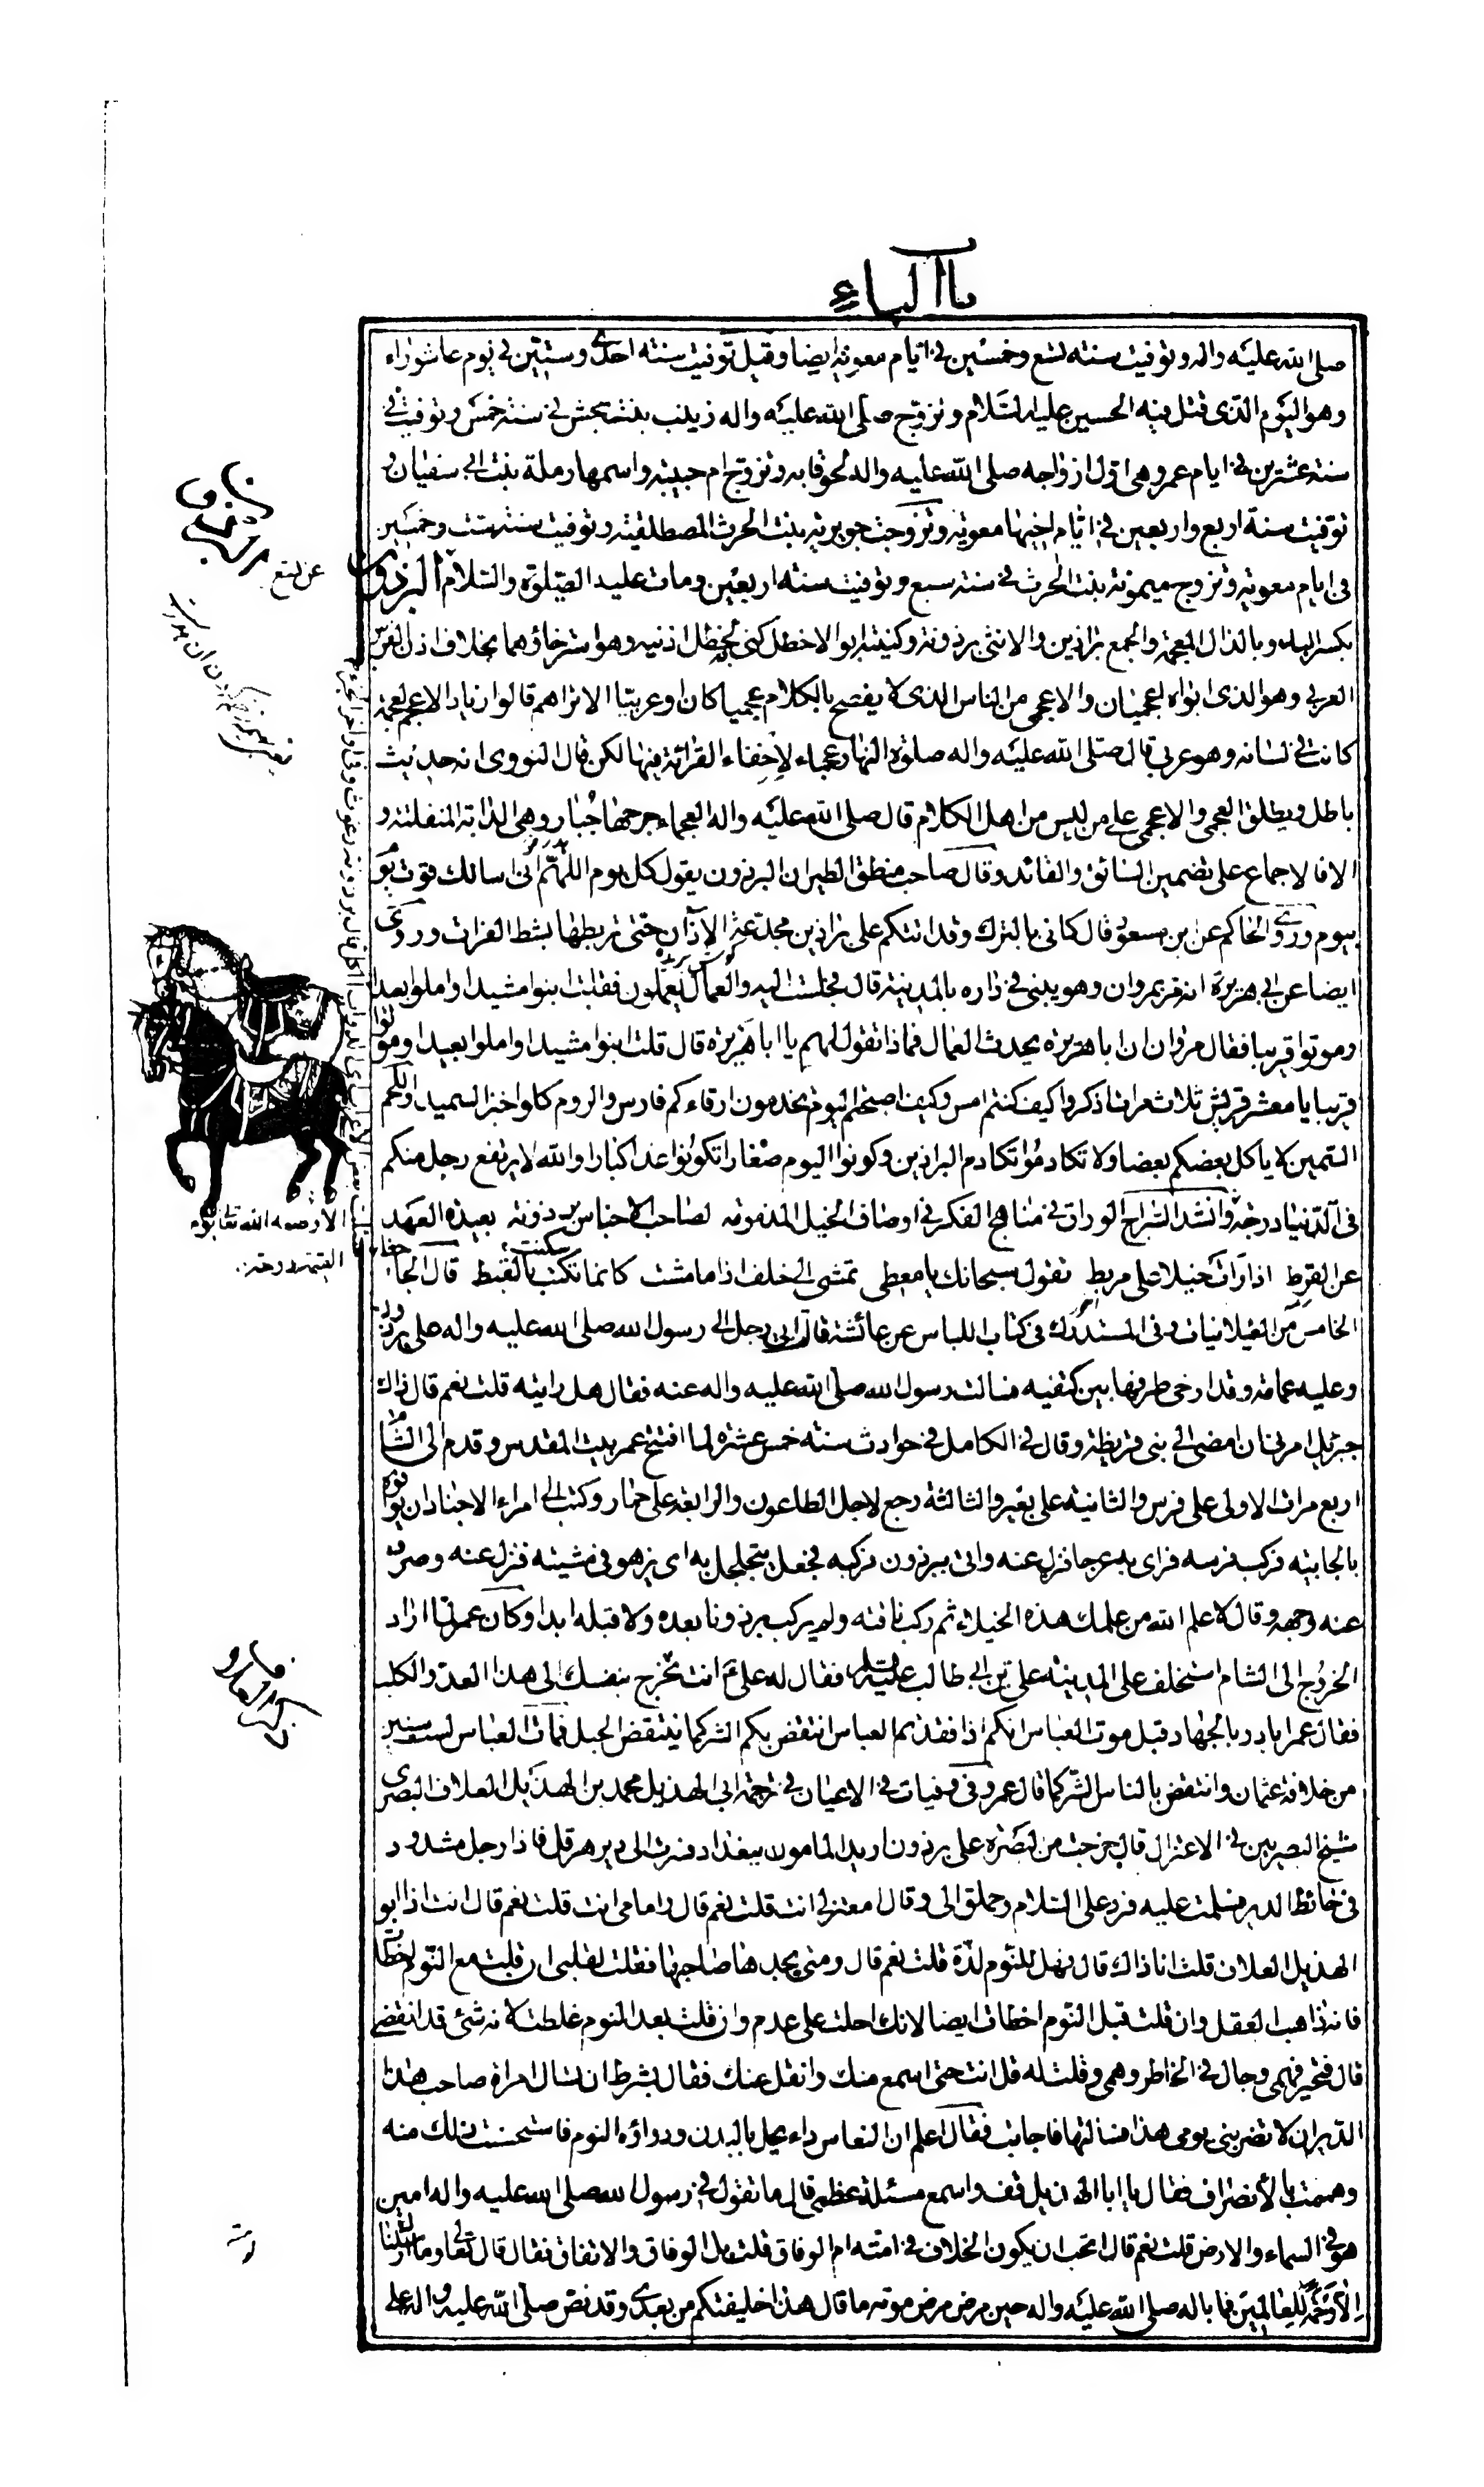 باب الباء
صلى الله عليه واله وتوفيت سنته لتسع وخمسين فى ايام معوية ايضا وقيل توفيت سنته احدى وستين فى يوم عاشوراء
وهو اليوم الذى قتل فيه الحسين عليه السلام وتزوج صلى الله عليه واله زينب بنت جحش فى سنة خمس وتوفيت فى
سنة عشرين فى ايام عمر وهى اول ازواجه صلى الله عليه واله لحوقا به وتزوج ام حبيبة واسمها رملة بنت ابى سفيان و
توفيت سنة اربع واربعين فى ايام اخيها معوية وتزوجت جويرية بنت الحرث المصطلقية وتوفيت سنة ست وخمسين
فى ايام معوية وتزوج ميمونة بنت الحرث فى سنة سبع وتوفيت سنة اربعين ومات عليه الصلوة والسلام البرذون
بكسر الباء وبالذال المعجمة والجمع براذين والانثى برذونة وكنيته ابو الاخطل كنى به لخطل اذنيه وهو استرخاؤهما بخلاف اذن الفرس
العربى وهو الذى ابواه اعجميان والاعجمى من الناس الذى لا يفصح بالكلام عجميا كان او عربيا الا تراهم قالوا زياد الاعجم لعجمة
كانت فى لسانه وهو عربى قال صلى الله عليه واله صلوة النهار عجماء لاخفاء القرائة فيها لكن قال النووى انه حديث
باطل ويطلق العجمى والاعجمى على من ليس من اهل الكلام قال صلى الله عليه واله العجماء جرحها جبار وهى الدابة المنفلتة و
الا فالاجماع على تضمين السائق والقائد وقال صاحب منطق الطير ان البرذون يقول كل يوم اللهم انى اسالك قوت يوم
بيوم وروى الحاكم عن بن مسعود قال كانى بالترك وقد اتتكم على براذين مجدعة الاذان حتى تربطها بشط الفرات وروى
ايضا عن ابى هريرة انه مر بمروان وهو يبنى فى داره بالمدينة قال فجلست اليه والعمال يعملون فقلت ابنوا مشيدا واملوا بعيدا
وموتوا قريبا فقال مروان ان ابا هريرة يحدث العمال فماذا تقول لهم يا ابا هريرة قال قلت ابنوا مشيدا واملوا بعيدا وموتوا
قريبا يا معشر قريش ثلاث مرات اذكروا كيف كنتم امس وكيف اصبحتم اليوم تخدمون ارقاءكم فارس والروم كلوا خبز السميد واللحم
السمين لا ياكل بعضكم بعضا ولا تكادموا تكادم البراذين وكونوا اليوم صغارا تكونوا غدا كبارا والله لا يرتفع رجل منكم
فى الدنيا درجة وانشد السراج الوراق فى مناهج الفكر فى اوصاف الخيل المذمومة لصاحب الاحباس برذونة بعيدة العهد
عن القرط اذا رات خيلا على مربط تقول سبحانك يا معطى تمشى الى خلف اذا ما مشت كانما تكتب بالقبط قال الجا
الخامس من الغيلانيات وفى المستدرك فى كتاب اللباس عن عائشة قالت اتى رجل الى رسول الله صلى الله عليه واله على برذون
وعليه عمامة وقد ارخى طرفها بين كتفيه فسالت رسول الله صلى الله عليه واله عنه فقال هل رايته قلت نعم قال ذاك
جبرئيل امرنى ان امضى الى بنى قريظة وقال فى الكامل فى حوادث سنة خمس عشرة لما افتتح عمر بيت المقدس وقدم الى الشام
اربع مرات الاولى على فرس والثانية على بعير والثالثة رجع لاجل الطاعون والرابعة على حمار وكتب الى امراء الاجناد ان يوافوه
بالجابية فركب فرسه فراى به عرجا فنزل عنه واتى ببرذون فركبه فجعل يتجلجل به اى يزهو فى مشيته فنزل عنه وصرف
عنه وجهه وقال لا علم الله من علمك هذه الخيلاء ثم ركب ناقته ولم يركب برذونا بعده ولا قبله ابدا وكان عمر لما اراد
الخروج الى الشام استخلف على المدينة على بن ابى طالب عليه السلام فقال له على انت تخرج بنفسك الى هذا العدو الكلب
فقال عمر ابادر بالجهاد قبل موت العباس انكم اذا فقدتم العباس انتقض بكم الشر كما ينتقض الحبل فمات العباس لست سنين
من خلافة عثمان وانتقض بالناس الشر كما قال عمر وفى وفيات فى الاعيان فى ترجمة ابى الهذيل محمد بن الهذيل العلاف البصرى
شيخ البصريين فى الاعتزال قال خرجت من البصرة على برذون اريد المامون ببغداد فسرت الى دير هرقل فاذا رجل مشدود
فى حائط الدير فسلمت عليه فرد على السلام وحملق الى وقال امعتزلى انت قلت نعم قال وامامى انت قلت نعم قال انت اذا ابو
الهذيل العلاف قلت انا ذاك قال فهل للنوم لذة قلت نعم قال ومتى يجدها صاحبها فقلت لقلبى ان قلت مع النوم اخطات
فانه ذاهب العقل وان قلت قبل النوم اخطات ايضا لانك احلت على عدم وان قلت بعد النوم غلطت لانه شئ قد انقضى
قال فتحير فهمى وجال فى الخاطر وهمى وقلت له قل انت حتى اسمع منك وانقل عنك فقال بشرط ان تسال امراة صاحب هذا
الدير ان لا تضربنى يومى هذا فسالتها فاجابت فقال اعلم ان النعاس داء يحل بالبدن ودواؤه النوم فاستحسنت ذلك منه
وهممت بالانصراف فقال يا ابا الهذيل قف واسمع مسئلة عظمى قال ما تقول فى رسول الله صلى الله عليه واله امين
هو فى السماء والارض قلت نعم قال اتحب ان يكون الخلاف فى امته ام الوفاق قلت بل الوفاق والاتفاق فقال قال تعالى وما ارسلناك
الا رحمة للعالمين فما باله صلى الله عليه واله حين مرض مرض موته ما قال هذا خليفتكم من بعدى وقد نص صلى الله عليه واله على